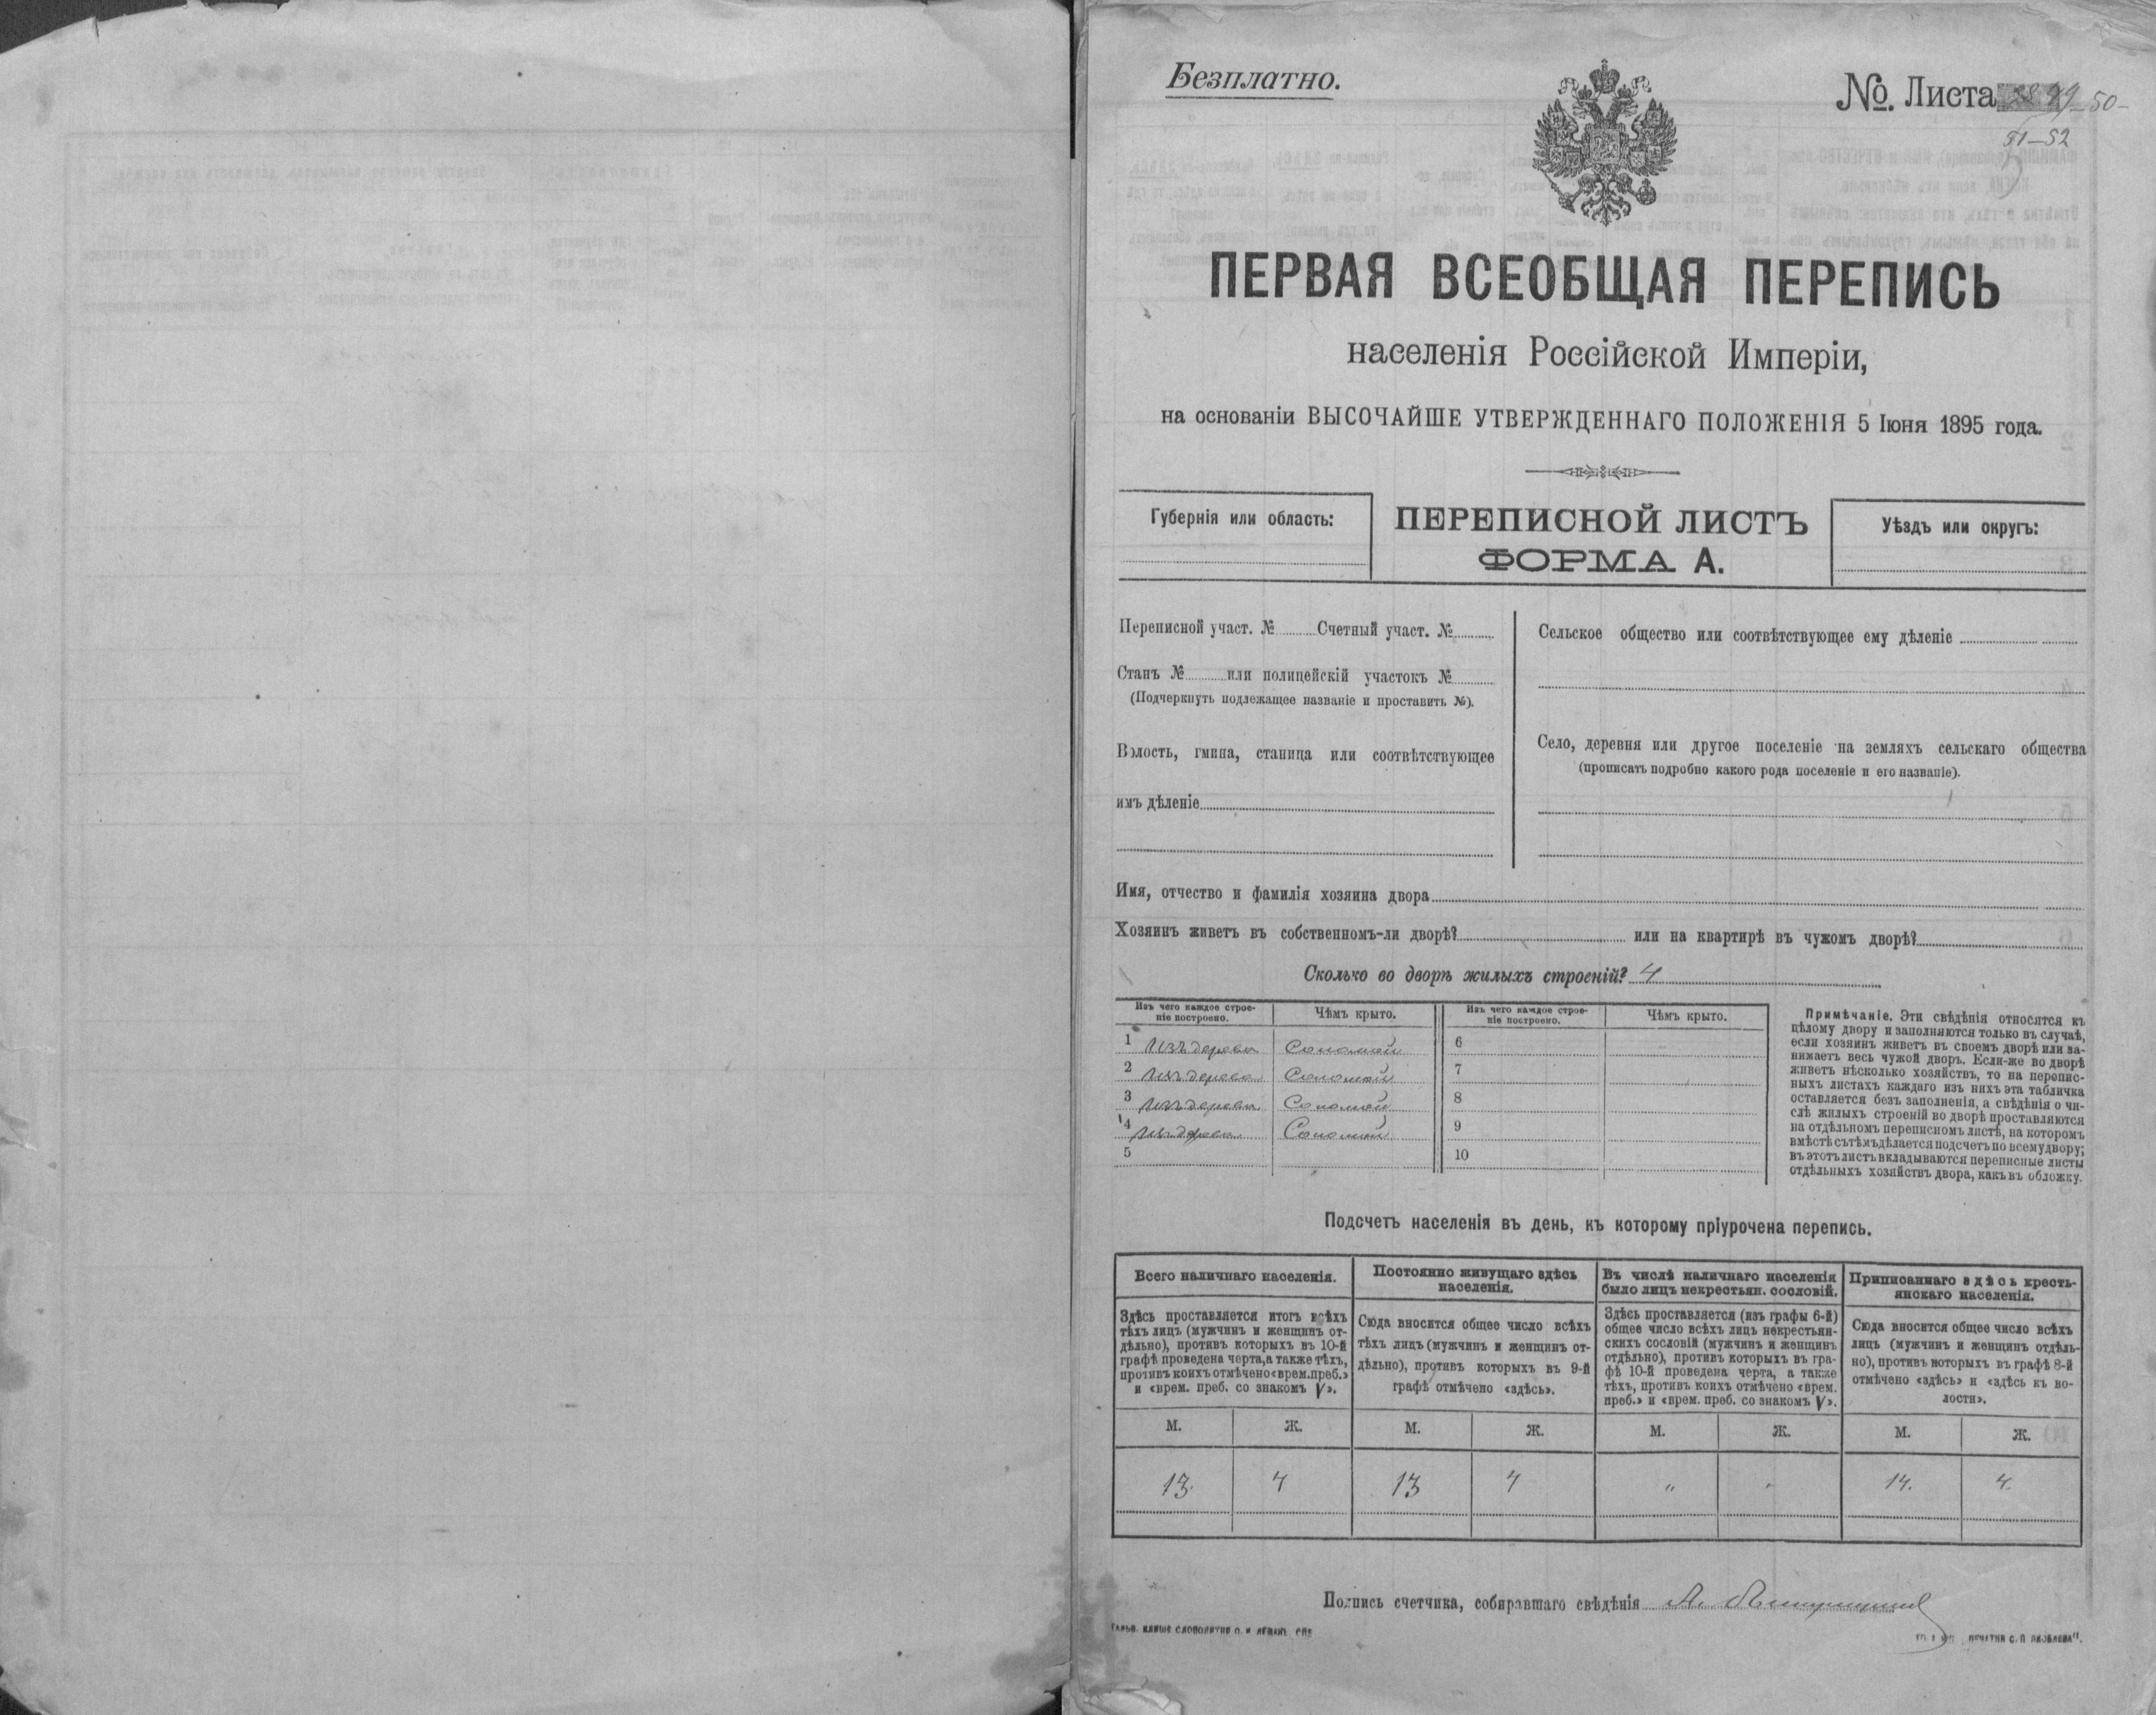 Безплатно.
№. Листа 49-50-
51-52
ПЕРВАЯ ВСЕОБЩАЯ ПЕРЕПИСЬ
населенія Россійской Имперіи,
на основаніи ВЫСОЧАЙШЕ УТВЕРЖДЕННАГО ПОЛОЖЕНІЯ 5 Іюня 1895 года.
Губернія или область:
ПЕРЕПИСНОЙ ЛИСТЪ
ФОРМА А.
Уѣздъ или округъ:
Переписной участ. № Счетный участ. №
Станъ № или полицейскій участокъ №
(Подчеркнуть подлежащее названіе и проставить №).
Волость, гмина, станица или соотвѣтствующее
имъ дѣленіе
Сельское общество или соотвѣтствующее ему дѣленіе
Село, деревня или другое поселеніе на земляхъ сельскаго общества
(прописать подробно какого рода поселеніе и его названіе).
Имя, отчество и фамилія хозяина двора
Хозяинъ живетъ въ собственномъ-ли дворѣ? или на квартирѣ въ чужомъ дворѣ?
Сколько во дворѣ жилыхъ строеній? 4
Изъ чего каждое строе-
ніе построено.
Чѣмъ крыто.
Изъ чего каждое строе-
ніе построено.
Чѣмъ крыто.
1 Изъ дерева Соломой 6
2 Изъ дерева Соломой 7
3 Изъ дерева Соломой 8
4 Изъ дерева Соломой 9
5 10
Примѣчаніе. Эти свѣдѣнія относятся къ
цѣлому двору и заполняются только въ случаѣ,
если хозяинъ живетъ въ своемъ дворѣ или за-
нимаетъ весь чужой дворъ. Если-же во дворѣ
живетъ нѣсколько хозяйствъ, то на перепис-
ныхъ листахъ каждаго изъ нихъ эта табличка
оставляется безъ заполненія, а свѣдѣнія о чи-
слѣ жилыхъ строеній во дворѣ проставляются
на отдѣльномъ переписномъ листѣ, на которомъ
вмѣстѣ съ тѣмъ дѣлается подсчетъ по всему двору;
въ этотъ листъ вкладываются переписные листы
отдѣльныхъ хозяйствъ двора, какъ въ обложку.
Подсчетъ населенія въ день, къ которому пріурочена перепись.
Всего наличнаго населенія.
Здѣсь проставляется итогъ всѣхъ
тѣхъ лицъ (мужчинъ и женщинъ от-
дѣльно), противъ которыхъ въ 10-й
графѣ проведена черта, а также тѣхъ,
противъ коихъ отмѣчено «врем. преб.»
и «врем. преб. со знакомъ V».
Постоянно живущаго здѣсь
населенія.
Сюда вносится общее число всѣхъ
тѣхъ лицъ (мужчинъ и женщинъ от-
дѣльно), противъ которыхъ въ 9-й
графѣ отмѣчено «здѣсь».
Въ числѣ наличнаго населенія
было лицъ некрестьян. сословій.
Здѣсь проставляется (изъ графы 6-й)
общее число всѣхъ лицъ некрестьян-
скихъ сословій (мужчинъ и женщинъ
отдѣльно), противъ которыхъ въ гра-
фѣ 10-й проведена черта, а также
тѣхъ, противъ коихъ отмѣчено «врем.
преб.» и «врем. преб. со знакомъ V».
Приписаннаго здѣсь кресть-
янскаго населенія.
Сюда вносится общее число всѣхъ
лицъ (мужчинъ и женщинъ отдѣль-
но), противъ которыхъ въ графѣ 8-й
отмѣчено «здѣсь» и «здѣсь къ во-
лости».
М. Ж. М. Ж. М. Ж. М. Ж.
13. 4 13 4 " " 14. 4.
Подпись счетчика, собиравшаго свѣдѣнія